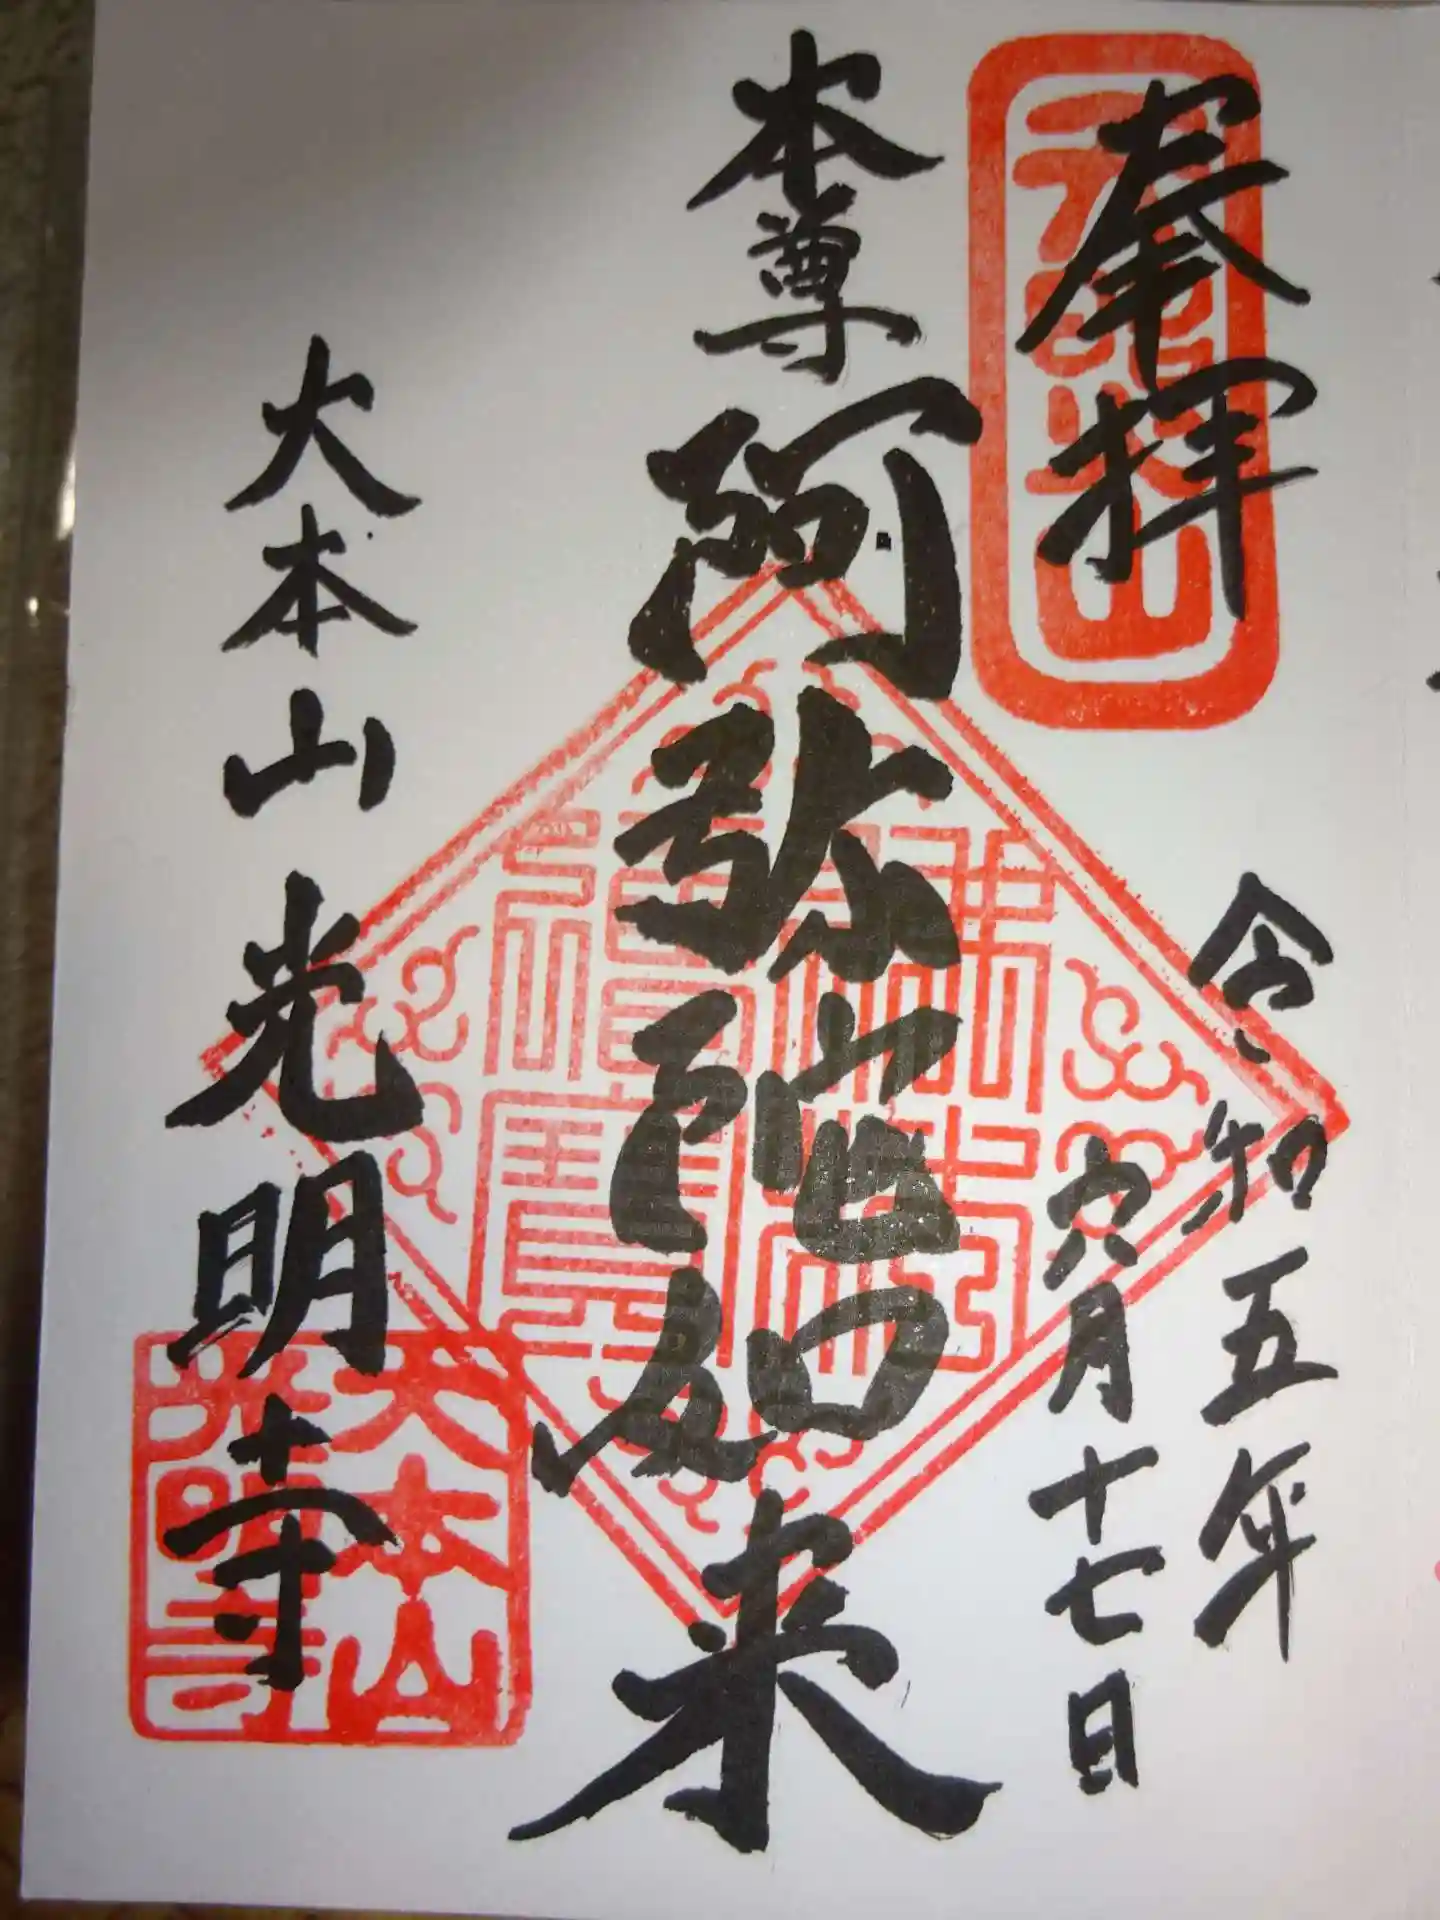 奉拝
令和五年
六月十七日
本尊阿弥陀如来
大本山光明寺
大本山
光明寺